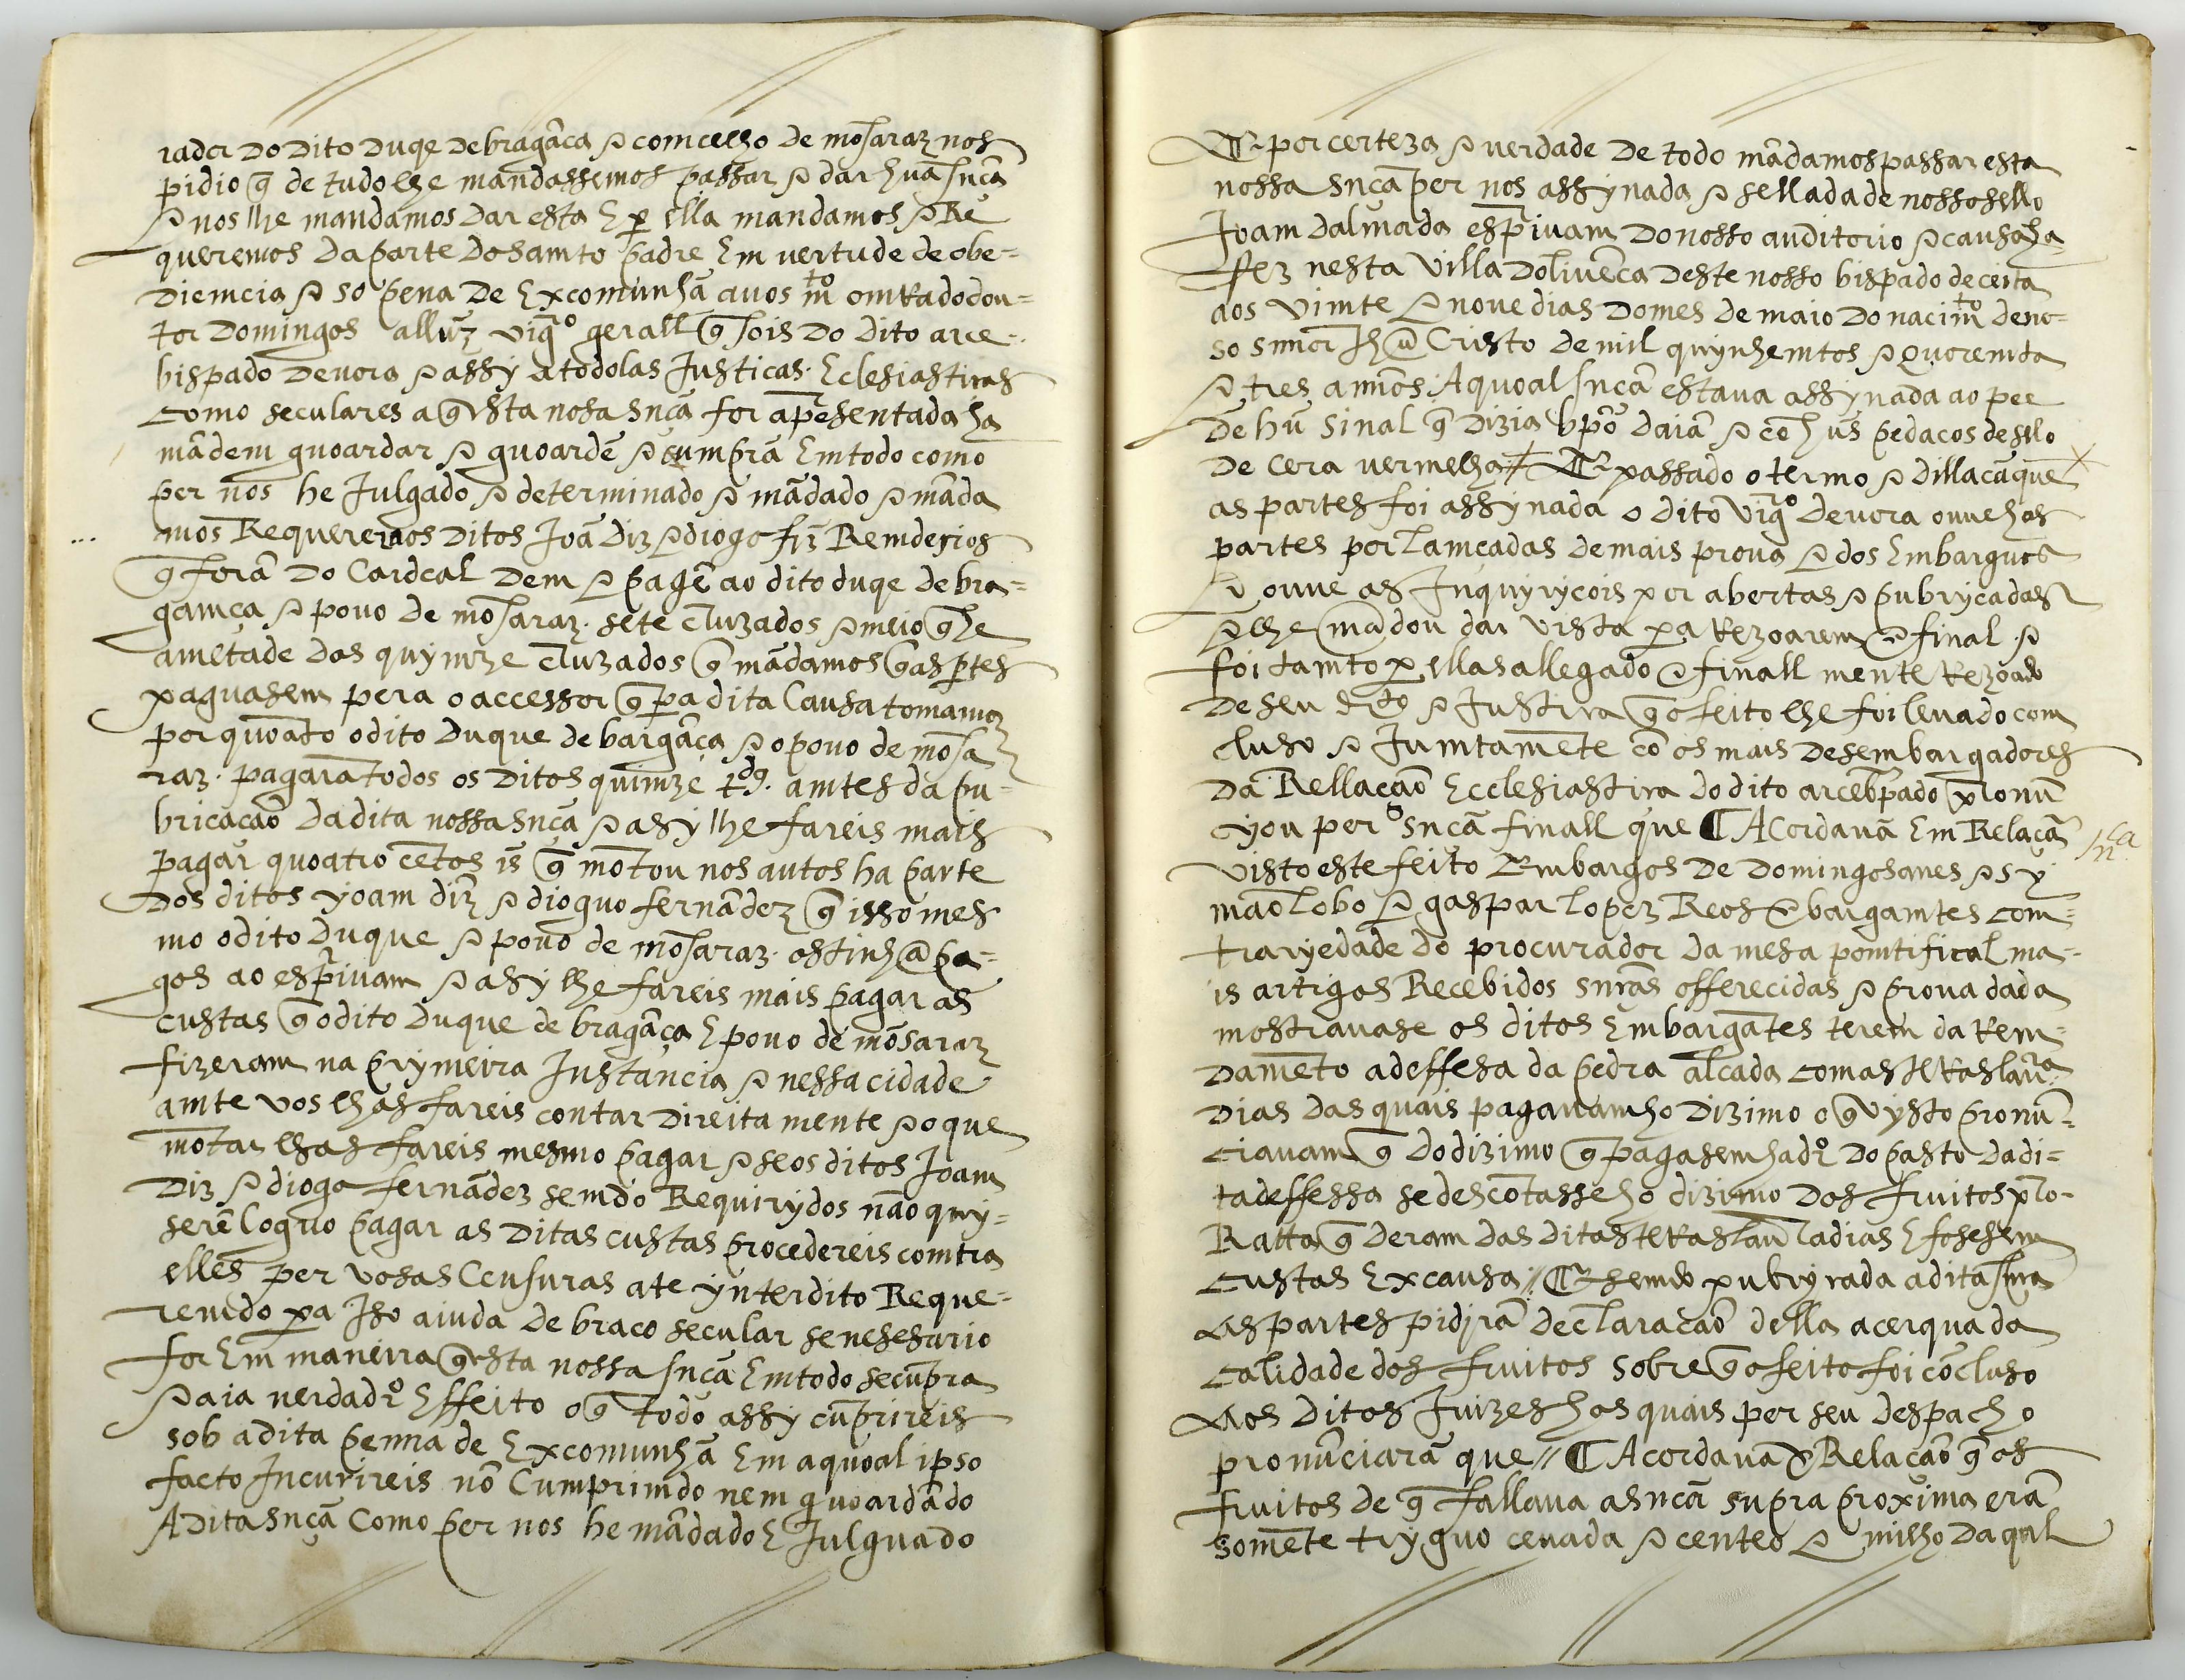 rador do dito duqe de bragãca e comcelho de mõsaraz nos
pidio q̃ de tudo lhe mandassemos passar e dar hũa snça
e nos lhe mandamos dar esta E per ella mandamos e Re
queremos da parte do samto padre Em vertude de obe-
diemcia e so pena de Excomunhã a vos mto omrado dou-
tor Domingos alluz vigro gerall q̃ sois do dito arce-
bispado devora e assy a todolas Justiças Eclesiasticas
como seculares a q̃ Esta nosa snçã for apresentada ha
mãdem guoardar e guoardẽ e cumprã Em todo como
per nos he Julgado e determinado e mãdado e mãda
mos Requerer aos ditos Joã diz e diogo frz Remdeiros
q̃ forã do Cardeal dem e pagẽ ao dito duqe de bra-
gamça e povo de mõsaraz sete cruzados e meio q̃ he
ametade dos quymze cruzados q̃ mãdamos q̃ as ptes
paguasem pera o accessor q̃ pa dita Causa tomamos
por quoãto o dito duque de bargãça e o povo de mõsa
raz pagarã todos os ditos quimze cdos amtes da pu-
bricação da dita nossa snçã e asy lhe fareis mais
pagar quoatro cẽtos rs q̃ mõtou nos autos ha parte
dos ditos yoam diz e dioguo fernãdez q̃ isso mes
mo o dito duque e povo de mõsaraz os tinhã pa-
gos ao esprivam e asy lhe fareis mais pagar as
custas q̃ o dito duque de bragãça E povo de mõsaraz
fizeram na prymeira Instancia e nessa cidade
amte vos lhas fareis contar direita mente e o que
mõtar lhas fareis mesmo pagar e se os ditos Joam
diz e diogo fernãdez semdo Requirydos não quy-
serẽ loguo pagar as ditas custas procedereis comtra
elles per vosas Censuras ate ynterdito Reque-
remdo pa Iso aiuda de braco secular se nesesario
for Em maneira q̃ esta nossa snçã Em todo se cũpra
e aia verdadro Effeito o q̃ todo assy cũprireis
sob a dita penna de Excomunhã Em a quoal ipso
facto Incurireis nõ Cumprimdo nem guoardãdo
A dita snçã Como per nos he mãdado E Julguado
E por certeza e verdade de todo mãdamos passar esta
nossa snça per nos assynada e sellada de nosso sello
Joam dalmada esprivam do nosso auditorio e causa ha
fez nesta villa dolivẽca deste nosso bispado de ceita
aos vimte e nove dias do mes de maio do nacimto de no-
so smnor Jhũ Cristo de mil quynhemtos e quoremta
e tres annos A quoal snçã estava assynada ao pee
de hũ sinal q̃ dizia bpõ daiã e cõ hũs pedacos de sello
de cera vermelha E passado o termo e dillacã que
as partes foi assynada o dito vigro devora ouve has
partes por lamcadas de mais prova e dos Embarguos
e ouve as Inquyryçois por abertas e pubrycadas
e lhe mãdou dar vista pa Rezoarem ẽ final e
foi tamto p ellas allegado e finall mente Rezoado
de seu drto e Justiça q̃ o feito lhe foi levado com
cluso e Jumtamẽte cõ os mais desembargadores
da Rellação Ecclesiastica do dito arcebpado pronũ
cyou per snçã finall que ¶ Acordavã Em Relaçã
visto este feito Embargos de domingos anes e sy
mão lobo e gaspar lopez Reos ẽbargamtes com-
traryedade do procurador da mesa pomtifical ma-
is artigos Recebidos snrãs offerecidas e prova dada
mostravase os ditos Embargãtes terem da Rem-
damẽto a deffesa da pedra alcada com as terras lavra
dias das quais pagavam ho dizimo o q̃ vysto pronũ-
ciavam q̃ do dizimo q̃ pagasem ha dro do pasto da di-
ta deffessa se descõtasse ho dizimo dos fruitos pro-
Ratta q̃ deram das ditas terras lavradias E fosesem
custas Ex causa // E semdo pubrycada a dita snça
as partes pidirã declaração della acerqua da
calidade dos fruitos sobre q̃ o feito foi cõcluso
Aos ditos Juizes hos quais per seu despacho
pronũciarã que // ¶ Acordavã ẽ Relação q̃ os
fruitos de q̃ fallava a snçã supra proxima erã
somẽte tryguo cevada e centeo e milho da qal